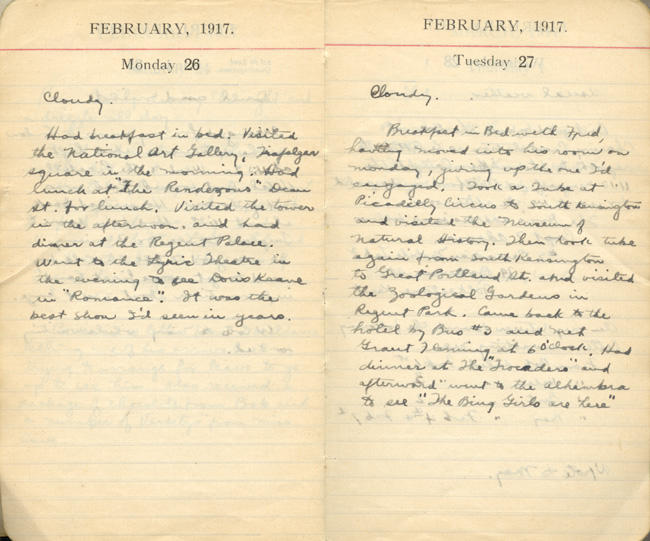 FEBRUARY, 1917.
Monday 26
Cloudy.
Had breakfast in bed. Visited
the National Art Gallery, Trafalger
square in the morning. Had
lunch at "The Rendezvous" Dean
st. for lunch. Visited the tower
in the afternoon. and had
dinner at the Regent Palace.
Went to the Lyric Theatre in
the evening to see Doris Keane
in "Romance". It was the
best show I'd seen in years.
FEBRUARY, 1917.
Tuesday 27
Cloudy.
Breakfast in Bed with Fred,
having moved into his room on
monday, giving up the one I'd
engaged. Took a Tube at
Picadilly Circus to South Kensington
and visited the Museum of
Natural History. Then took tube
again from South Kensington
to Great Portland St. and visited
the Zoological Gardens in
Regent Park. Came back to the
hotel by Bus #3 and met
Grant Fleming at 6 O'Clock. Had
dinner at The "Trocadero" and
afterward went to the Alhambra
to see "The Bing Girls are here"